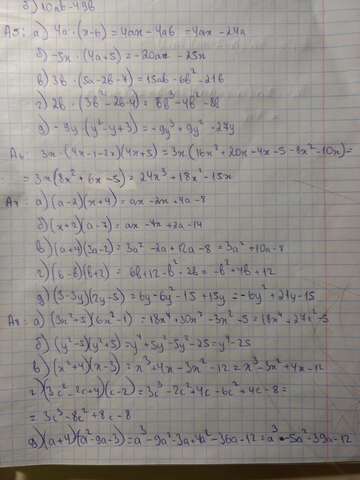 б) 10ab-49b
А5: а) 4a·(x-6)=4ax-4a6 =4ax-24a
б) -5x·(4a+5)=-20ax-25x
в) 3b·(5a-2b-7)=15ab-6b²-21b
г) 2b·(3b²-2b-4)=6b³-4b²-8b
д) -9y·(y²-y+3)=-9y³+9y²-27y
А6: 3x·(4x-1-2x)(4x+5)=3x(16x²+20x-4x-5-8x²-10x)=
=3x(8x²+6x-5)=24x³+18x²-15x
А7: а)(a-2)(x+4)=ax-2x+4a-8
б)(x+2)(a-7)=ax-7x+2a-14
в)(a+4)(3a-2)=3a²-2a+12a-8=3a²+10a-8
г)(6-b)(b+2)=6b+12-b²-2b=-b²+4b+12
д)(3-3y)(2y-5)=6y-6y²-15+15y=-6y²+21y-15
А8: а)(3x²-5)(6x²-1)=18x⁴+30x²-3x²-5=18x⁴+27x²-5
б)(y²-5)(y²+5)=y⁴+5y²-5y²-25=y⁴-25
в)(x²+4)(x-3)=x³+4x-3x²-12=x³-3x²+4x-12
г)(3c²-2c+4)(c-2)=3c³-2c²+4c-6c²+4c-8=
=3c³-8c²+8c-8
д)(a+4)(a²-9a-3)=a³-9a²-3a+4a²-36a-12=a³-5a²-39a-12